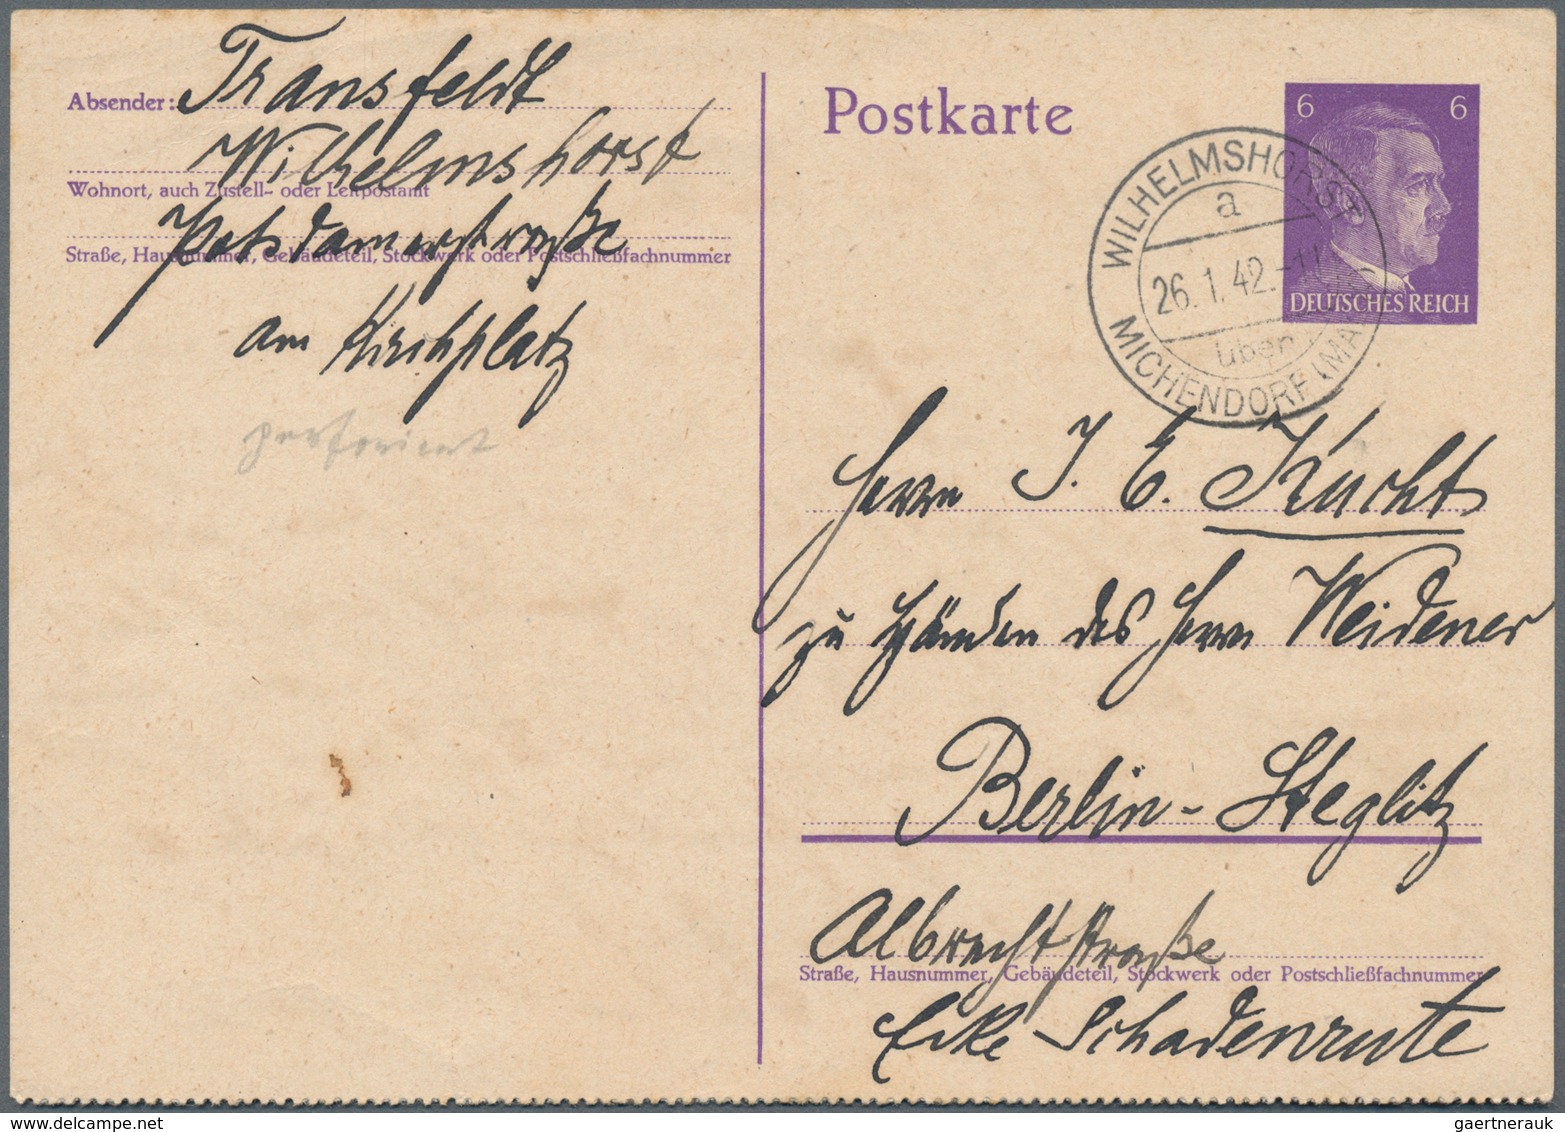 Absender: Transfeldt
Wilhelmshorst
Wohnort, auch Zustell- oder Leitpostamt
Potsdamerstraße
Straße, Hausnummer, Gebäudeteil, Stockwerk oder Postschließfachnummer
am Kirchplatz
perforiert
Postkarte
6 6
DEUTSCHES REICH
WILHELMSHORST
a
26.1.42.-11
über
MICHENDORF (MA
Herrn J. E. Kucht
zu Händen des Herrn Weidener
Berlin-Steglitz
Albrechtstraße
Straße, Hausnummer, Gebäudeteil, Stockwerk oder Postschließfachnummer
Ecke Schadenrute
gaertnerauk